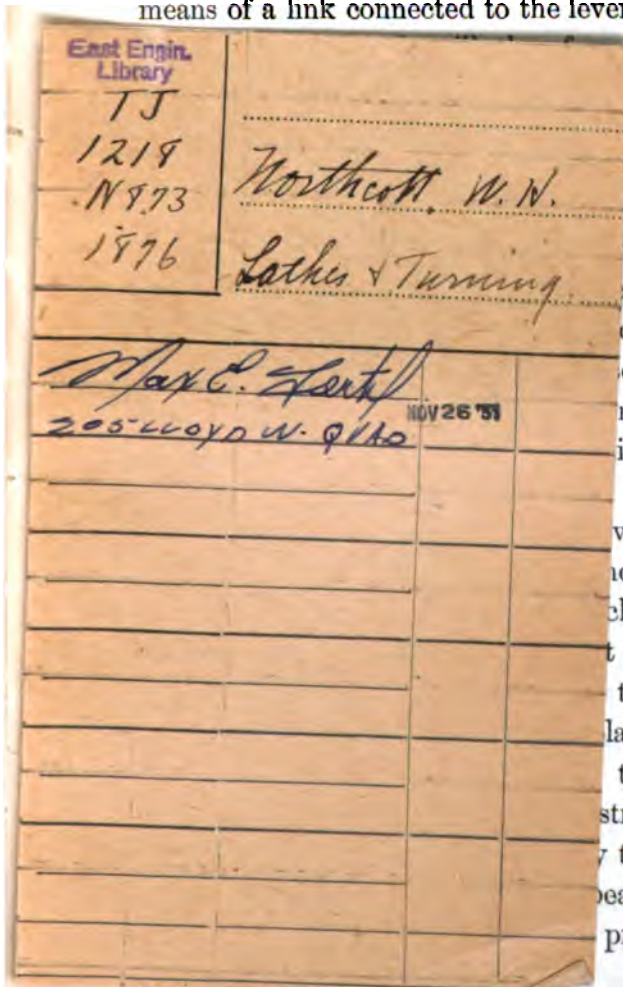 means of a link connected to the lever
East Engin.
Library
TJ
1218
.N873
1876
Northcott, W. H.
Lathes & Turning
Max E.
NOV 26 '51
205 LLOYD W. QUAD